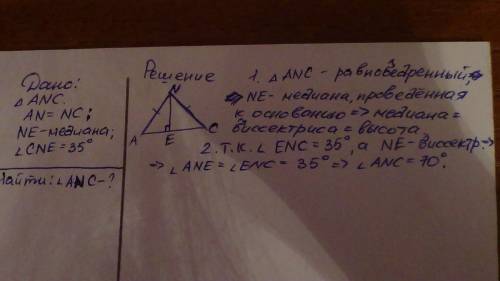 Дано:
△ANC.
AN = NC;
NE-медиана;
∠CNE = 35°
Найти: ∠ANC-?
Решение
N
A
E
C
1. △ANC - равнобедренный, =>
=> NE - медиана, проведённая
к основанию => медиана =
биссектриса = высота
2. Т.К. ∠ENC = 35°, а NE-биссектр =>
=> ∠ANE = ∠ENC = 35° => ∠ANC = 70°.